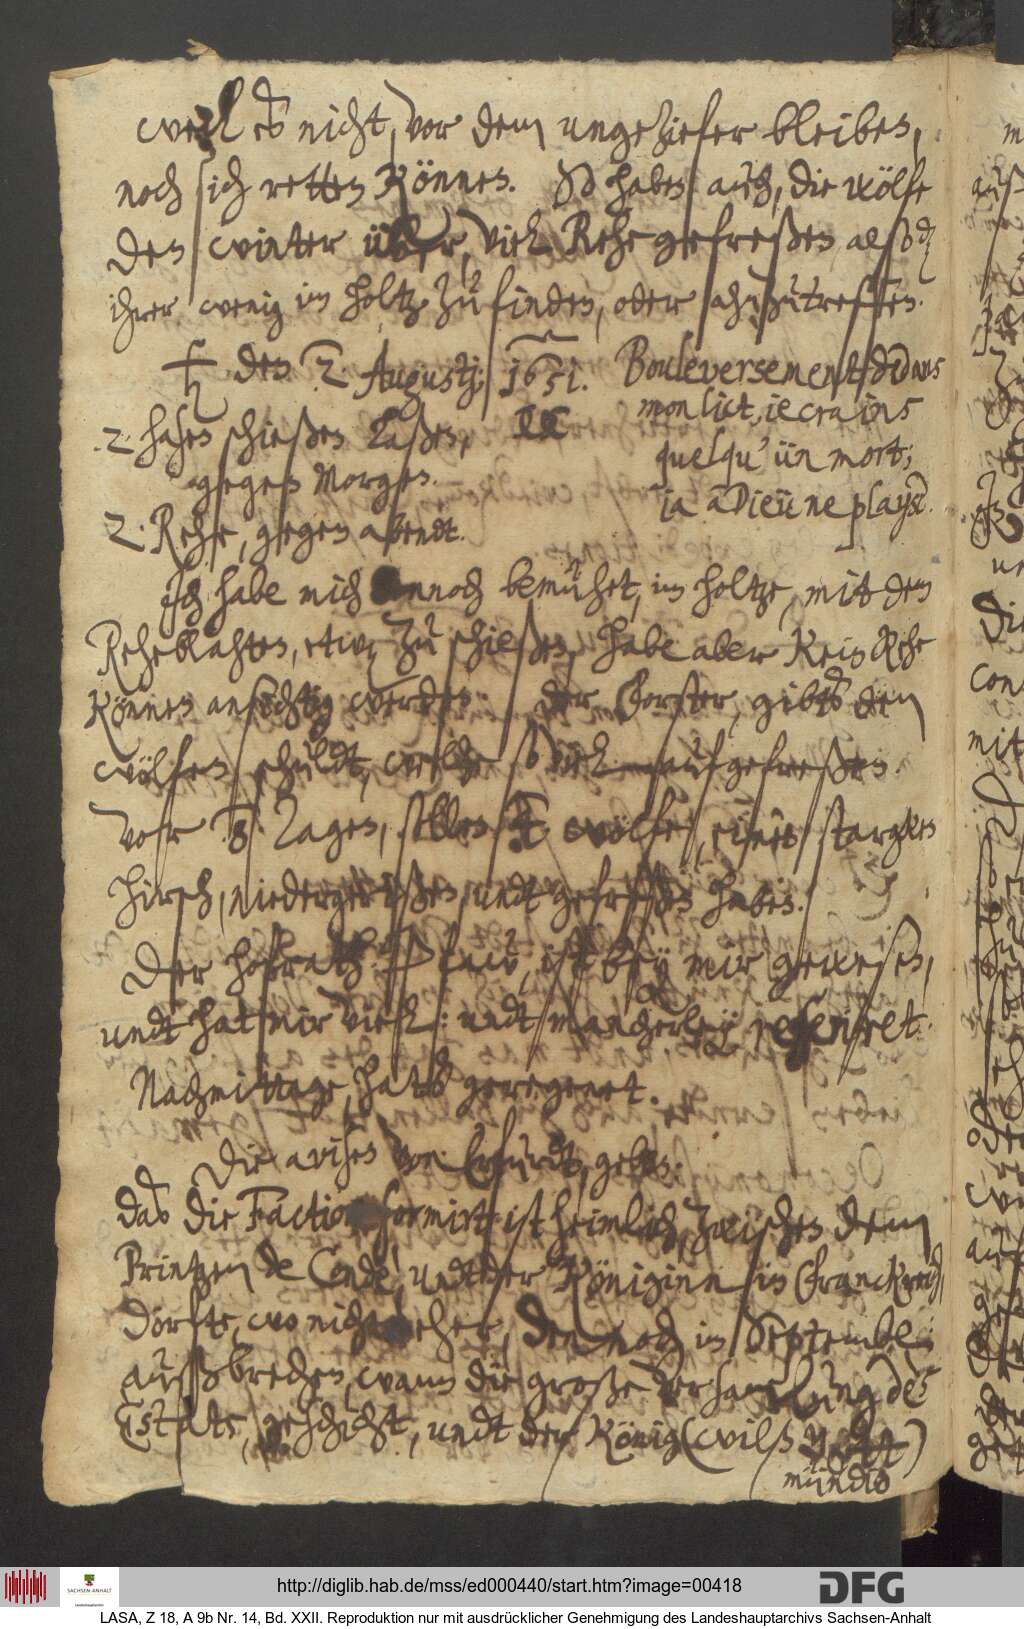 weil es nicht, vor dem ungeziefer bleiben,
noch sich retten können. So haben auch, die wölfe
den winter über, viel Rehe gefreßen, also dz
ihrer wenig im holtz zu finden, oder anzutreffen.
♄ den 2. Augustj; 1651.
Bouleversement, dedans
mon lict, je crains
quelqu' ün mort;
ja a Dieü ne playse.
2 hasen schießen laßen,
gegen Morgen.
2. Rehe, gegen abendt.
Ich habe mich ennoch bemühet, im holtze, mit dem
Reheblahten, etwaß zu schießen, habe aber kein Rehe
können ansichtig werden. der Forster, gibts den
wölfen schuldt, welche so viel aufgefreßen.
Vor 8. Tagen, sollen wölfe, einen starcken
hirsch, niedergerißen, undt gefreßen haben.
Der hofraht, ist bey mir gewesen,
undt hat mir viel: undt mancherley referiret.
Nachmittage, hats geregenet.
Die avisen von Erfurdt, geben:
das die Faction formirt ist heimlich, zwischen dem
Printzen de Condè, undt der Königinn in Franckreich,
dörfte, wo nicht eher, dennoch im Septembri
außbrechen, wann die große versamlung des
Estats, geschicht, undt der König (wilß Gott)
mündig
http://diglib.hab.de/mss/ed000440/start.htm?image=00418
SACHSEN-ANHALT
DFG
LASA, Z 18, A 9b Nr. 14, Bd. XXII. Reproduktion nur mit ausdrücklicher Genehmigung des Landeshauptarchivs Sachsen-Anhalt